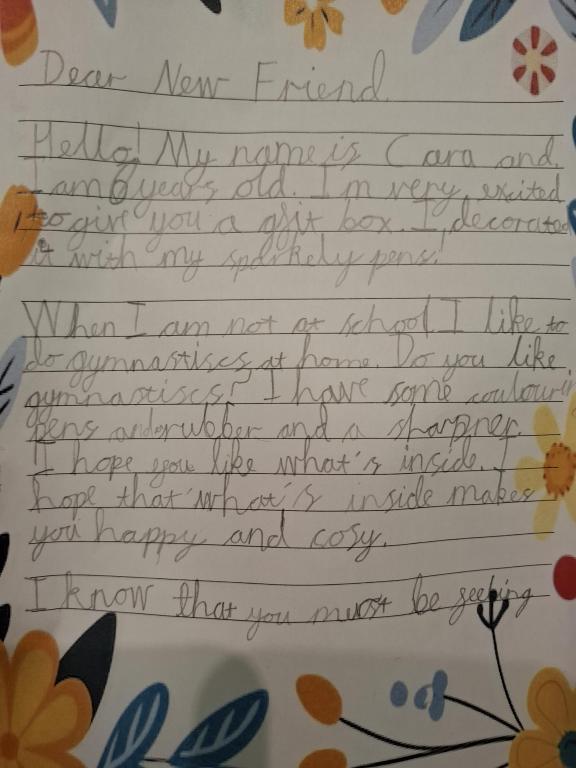 Dear New Friend
Hello! My name is Cara and
I am 6 years old. I'm very excited
to give you a gfit box. I decorated
it with my sparkely pens!
When I am not at school I like to
do gymnastiscs at home. Do you like
gymnastiscs? I have some coulouring
pens and rubber and a sharpner.
I hope you like what's inside. I
hope that what's inside makes
you happy and cosy.
I know that you must be